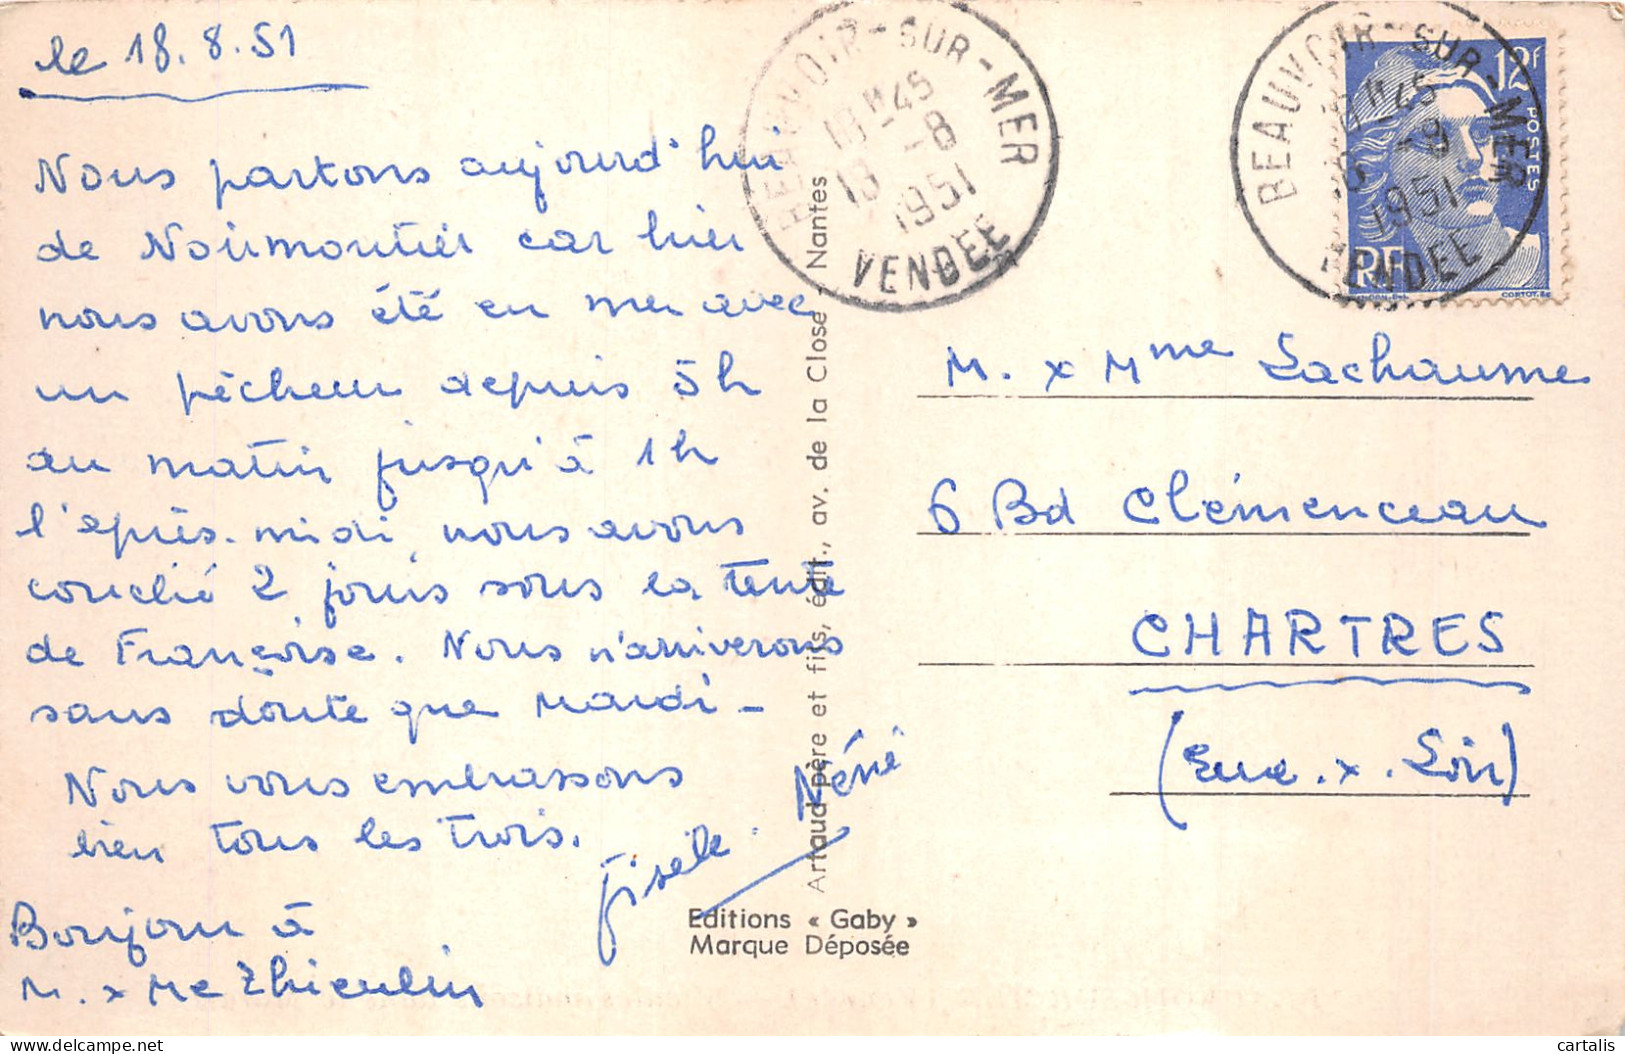 le 18.8.51
Nous partons aujourd'hui
de Noirmoutier car hier
nous avons été en mer avec
un pêcheur depuis 5h
au matin jusqu'à 1h
l'après-midi, nous avons
couché 2 jours sous la tente
de Françoise. Nous n'arriverons
sans doute que mardi -
Nous vous embrassons
bien tous les trois.
Gisele. Néné
Bonjour à
M. x Me Thieulin
BEAUVOIR-SUR-MER
18H45
18 -8
1951
VENDEE
Artaud père et fils, édit., av. de la Close - Nantes
Editions « Gaby »
Marque Déposée
BEAUVOIR-SUR-MER
18H45
18 -8
1951
VENDEE
12F
POSTES
RF
GANDON.DEL.
CORTOT.SC
M. x Mme Lachaume
6 Bd Clémenceau
CHARTRES
(Eure. x. Loir)
cartalis
delcampe.net